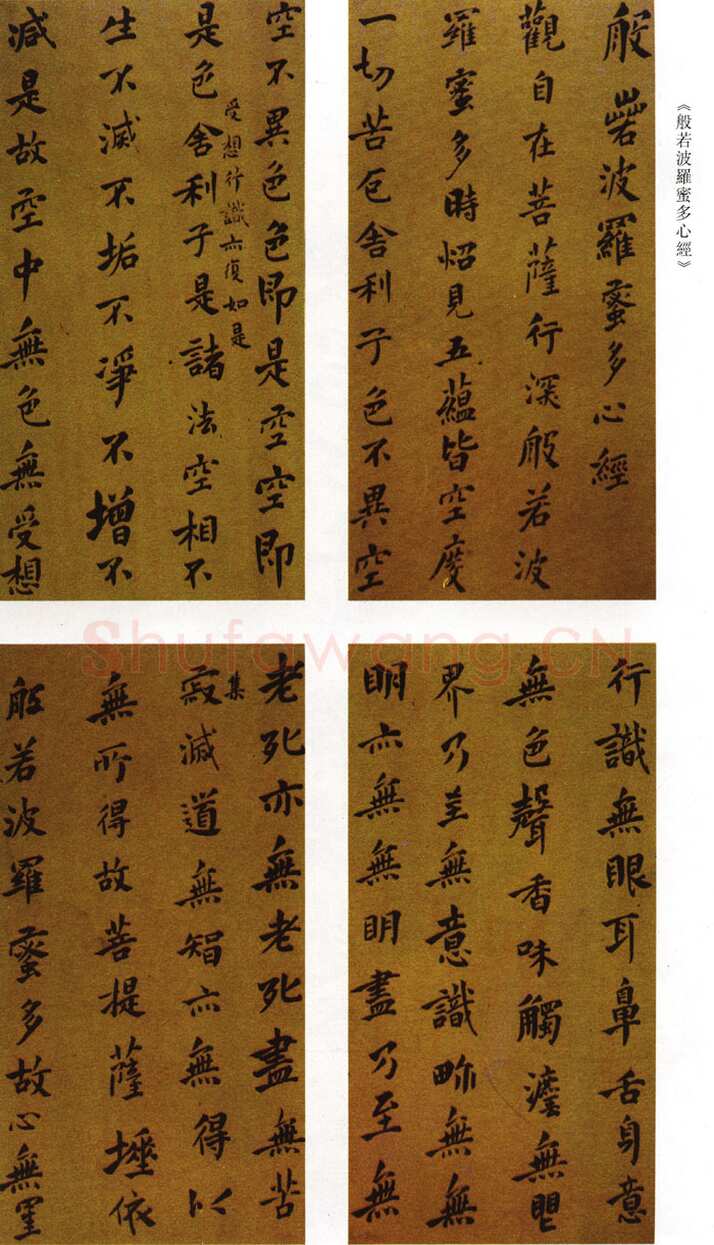 《般若波羅蜜多心經》
般若波羅蜜多心經
觀自在菩薩行深般若波
羅蜜多時炤見五蘊皆空度
一切苦厄舍利子色不異空
空不異色色即是空空即
受想行識亦復如是
是色舍利子是諸法空相不
生不滅不垢不淨不增不
減是故空中無色無受想
行識無眼耳鼻舌身意
無色聲香味觸法無眼
界乃至無意識界無無
明亦無無明盡乃至無
老死亦無老死盡無苦
集
寂滅道無智亦無得以
無所得故菩提薩埵依
般若波羅蜜多故心無罣
Shufawang.CN